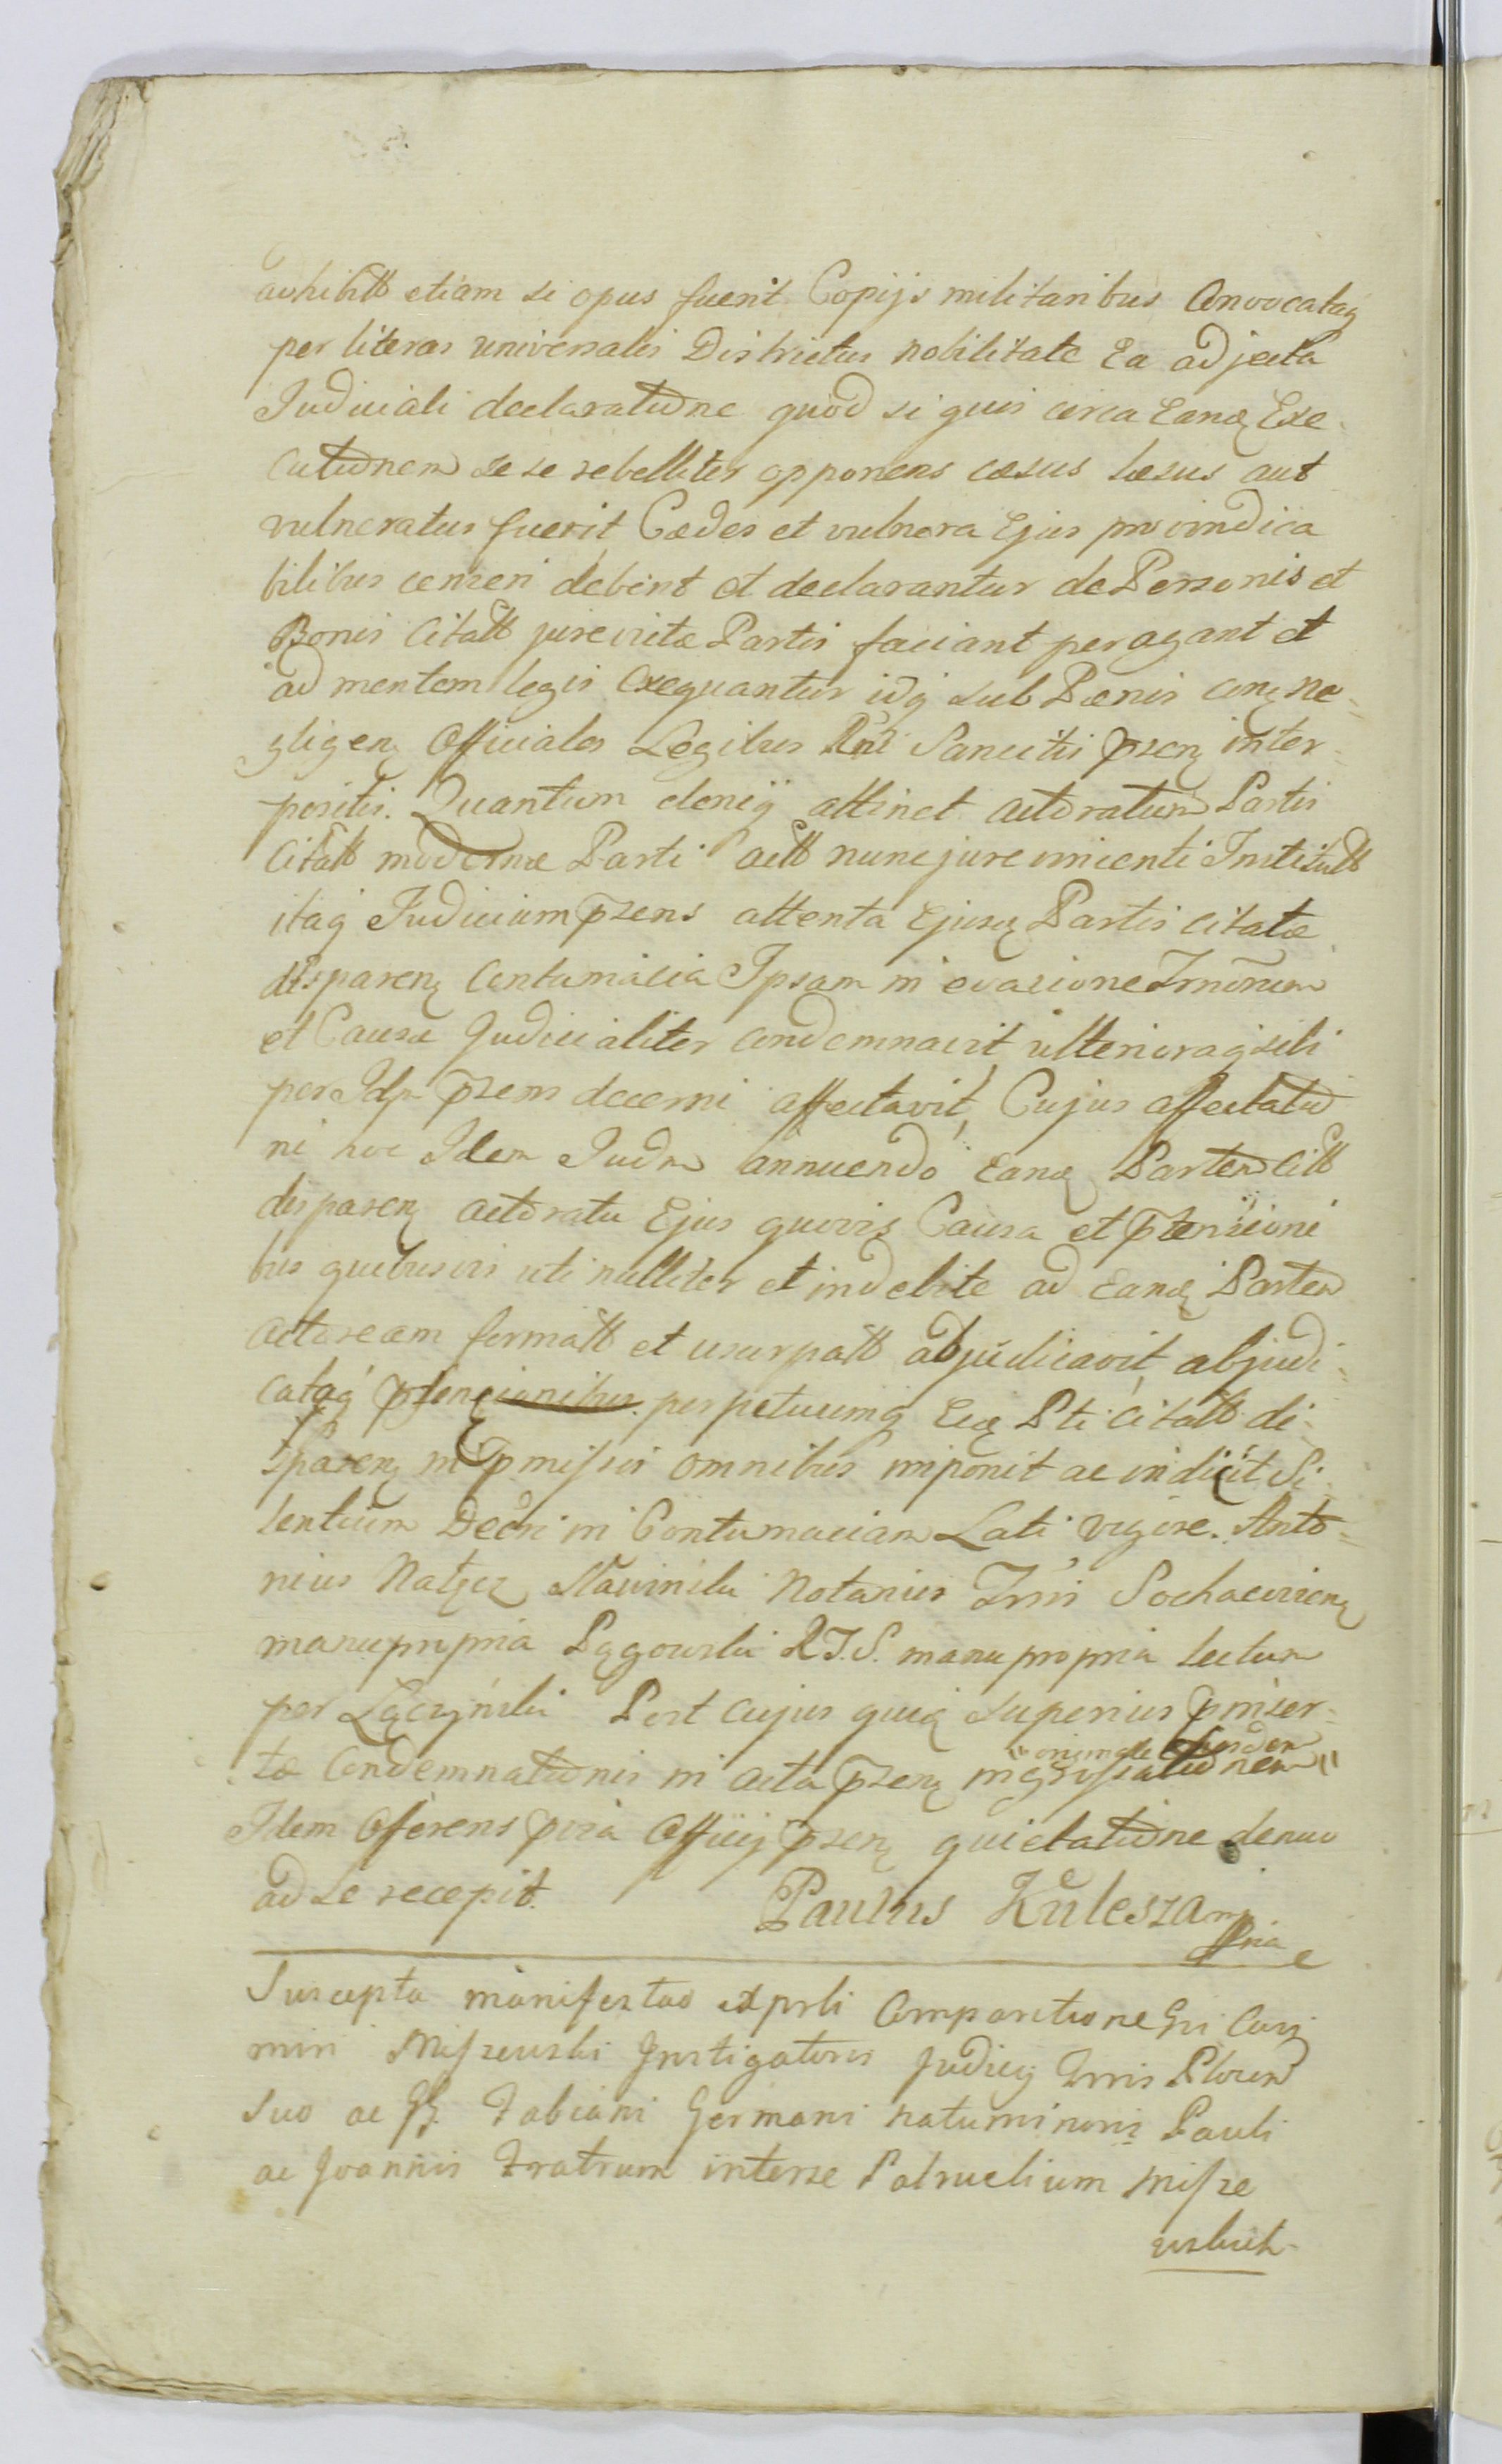 adhibitt etiam si opus fuerit Copijs militaribus Convocataq
per literas universales Districtus nobilitate Ea adjecta
Judiciali declaratione quod si quis circa Eanq Exe
cutionem se se rebelliter opponens cæsus læsus aut
vulneratus fuerit Cædes et vulnera Ejus pro vindica
bilibus censeri debent et declarantur de Personis et
Bonis Citatt jurevictæ Partis faciant peragant et
ad mentem legis exequantur idq sub Pænis conq ne-
gligenq Officiales Legibus Rni Sancitis przenq inter-
positis. Quantum deniq attinet actoratum Partis
Citatt modernæ Parti actt nunc jure vincenti Institutt
itaq Judicium przens attenta Ejusq Partis citatæ
disparenq Contumacia Ipsam in evasione Trnorum
et Causæ Judicialiter condemnavit, ulterioraq sibi
per Idm przens decerni affectavit, Cujus affectatio
ni hoc Idem Judm annuendo Eanq Partem Citt
disparenq actoratu Ejus quovis Causa et prtensioni
bus quibusvis uti nulliter et indebite ad Eanq Partem
Actoream formatt et usurpatt abjudicavit, abjudi-
cataq perpetuumq Eiq Pti citatt di-
sparenq in pmissis omnibus imponit ac indicit Si-
lentium Decri in Contumaciam Lati vigore. Anto-
nius Natęcz Sławinski Notarius Trris Sochaceviensq
manu propria Pągowski R.T.S. manu propria Lectum
per Łączyński Post cujus quiq superius pinser-
originale ejusdem
tæ Condemnationis in acta przenq ingrossationem
Idem Offerens pria Officij przenq quietatione denuo
ad se recepit. Paulus Kulesza mpria
Suscepta manifestao ad prsli Comparitione Gsi Casi
miri Miszewski Instigatoris Judicij Trris Plocen
suo ac GG. Fabiani Germani natu minoris Pauli
ac Joannis Fratrum inter se Patruelium Misze
wskich